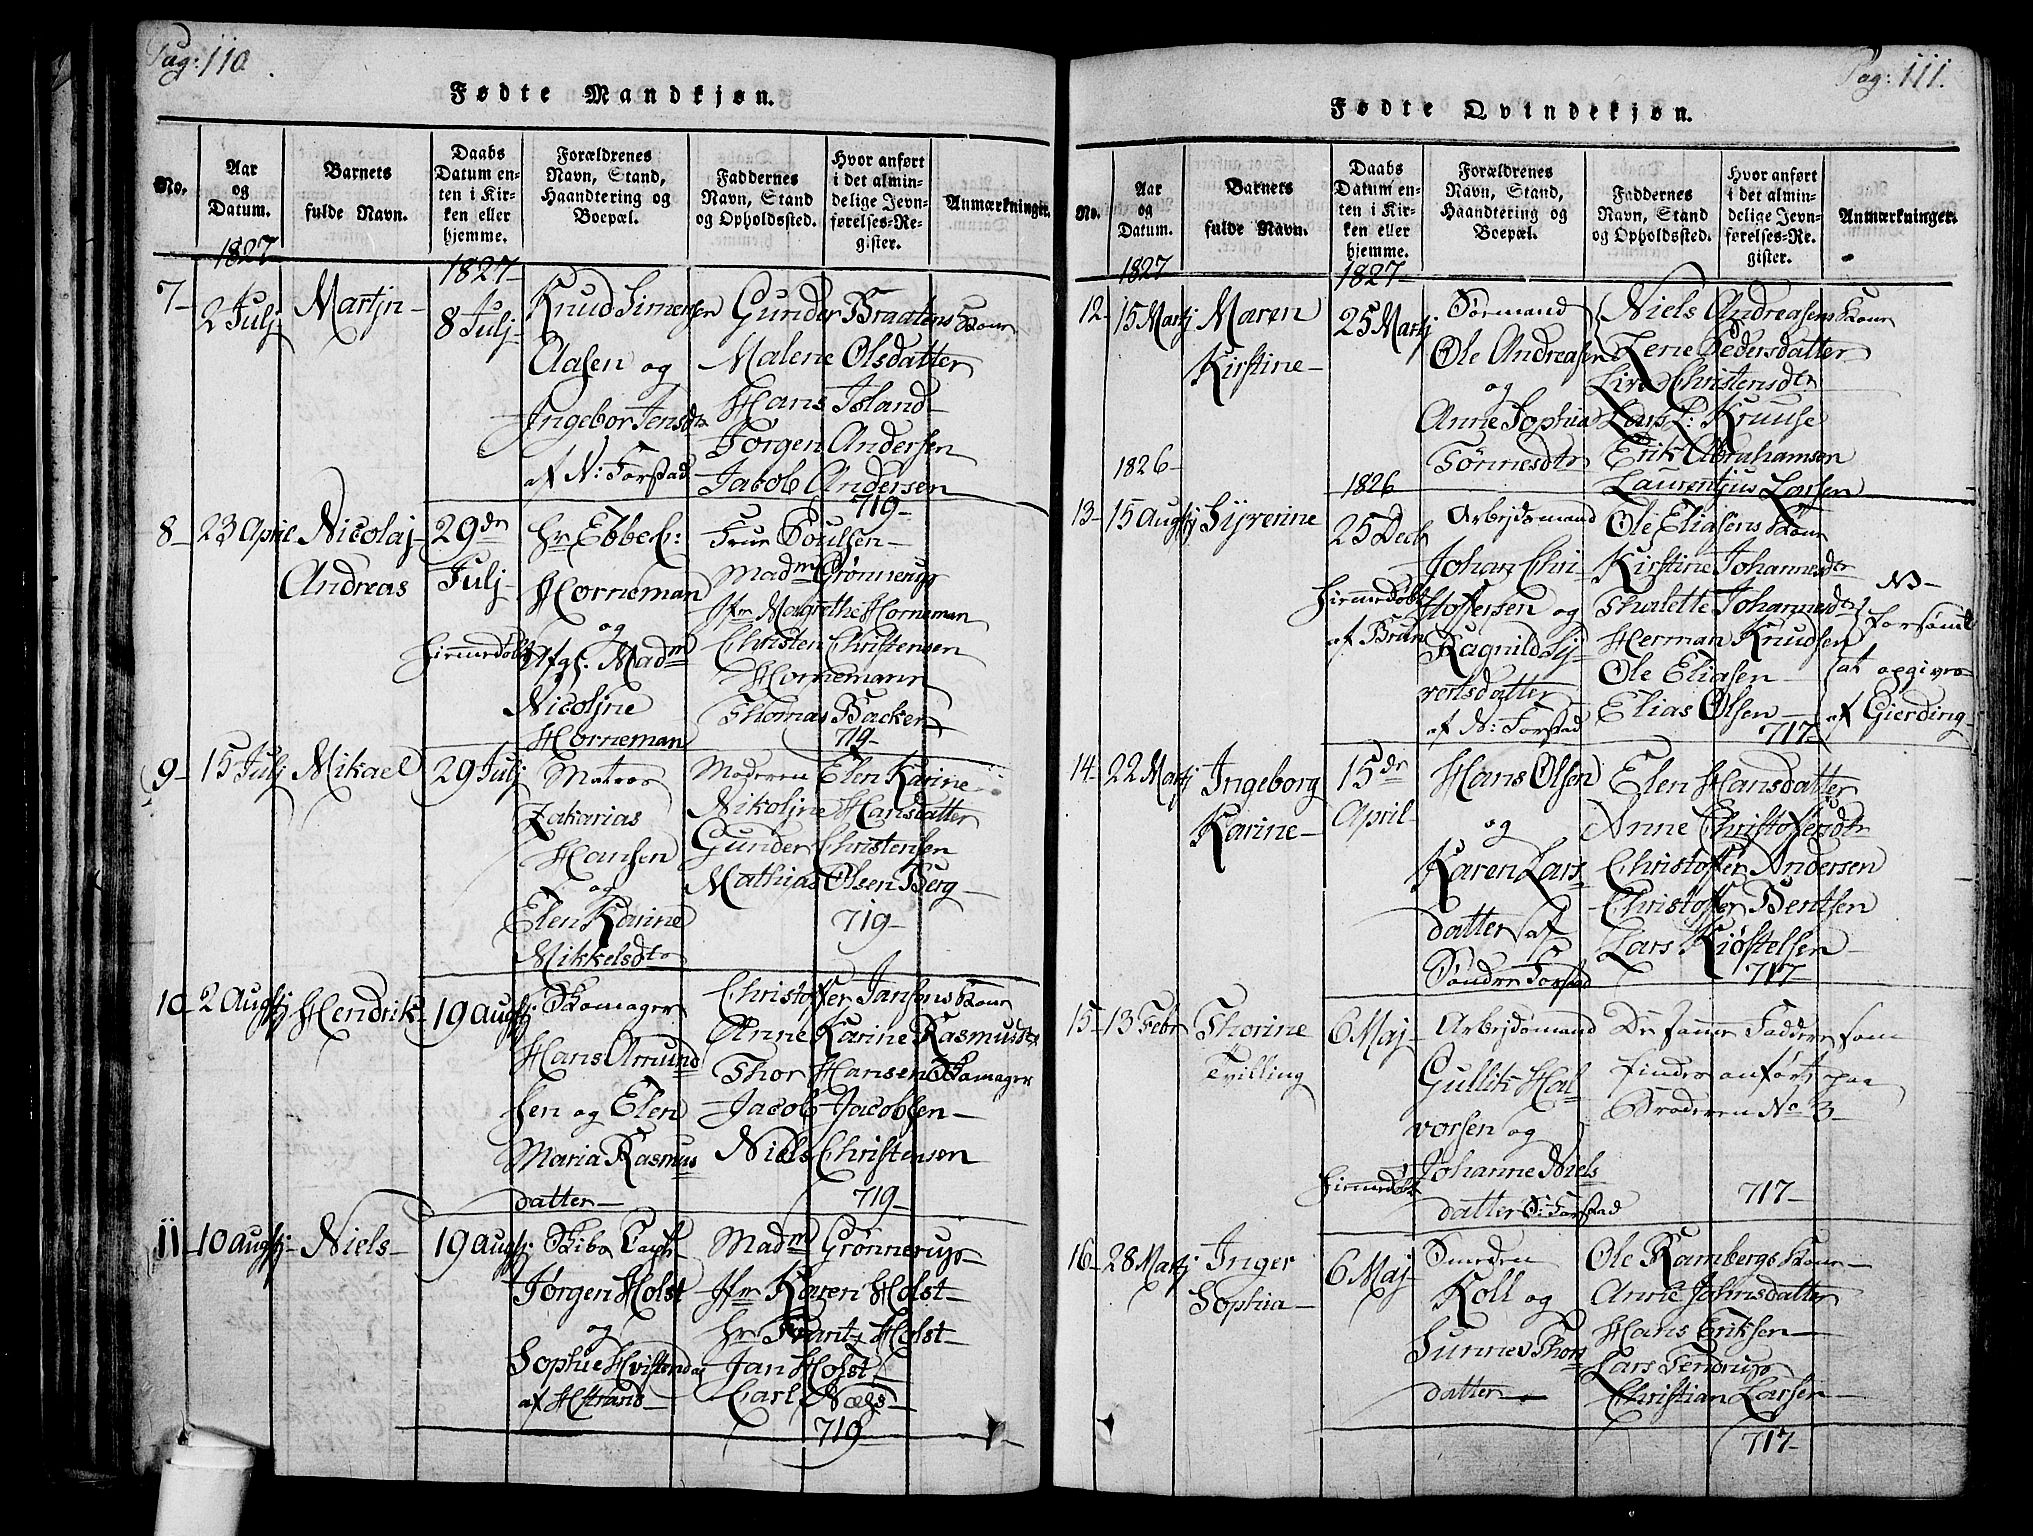 Pag: 110
Fødte Mandkjøn.
No.
Aar og Datum.
Barnets fulde Navn.
Daabs Datum enten i Kirken eller hjemme.
Forældrenes Navn, Stand, Haandtering og Boepæl.
Faddernes Navn, Stand og Opholdssted.
Hvor anført i det almindelige Jevnførelses-Register.
Anmærkninger.
1827
1827
7
2 Julj
Martjn
8 Julj
Knud Simersen
Aasen og
Ingebor Jensdtr
af N: Torstad
Gunder Braatens Kone
Malene Olsdatter
Hans Island
Jørgen Andersen
Jacob Andersen
719
8
23 April
Nicolaj
Andreas
29de
Julj
Hiemedøbt
Hr Ebbe
Horneman
og
Afgl. Madm
Nicoljne
Horneman
Frue Poulsen
Madm Grønnerup
Jfr Magrethe Horneman
Christen Christensen
Hornemann
Thomas Backer
719
9
15 Julj
Mikael
29 Julj
Matros
Zakarias
Hansen
og
Elen Karine
Mikkelsdtr
Moderen Elen Karine
Nikoljne Hansdatter
Gunder Christensen
Mathias Olsen Berg
719
10
2 Augstj
Hendrik
19 Augstj
Skomager
Hans Amund
sen og Elen
Maria Rasmus
datter
Christoffer Jansens Kone
Anne Karine Rasmusdtr
Thor Hansen Skomager
Jacob Jacobsen
Niels Christensen
719
11
10 Augstj
Niels
19 Augstj
Skibs Capt:
Jørgen Holst
og
Sophie Hvistendal
af HStrand
Madm Grønnerup
Jfr Karen Holst
Hr Frantz Holst
Jan Holst
Carl Næss
719
Pag: 111.
Fødte Qvindekjøn.
No.
Aar og Datum.
Barnets fulde Navn.
Daabs Datum enten i Kirken eller hjemme.
Forældrenes Navn, Stand, Haandtering og Boepæl.
Faddernes Navn, Stand og Opholdssted.
Hvor anført i det almindelige Jevnførelses-Register.
Anmærkninger.
1827
1827
12
15 Martj
Maren
Kirstine
25 Martj
Sømand
Ole Andreasen
og
Anne Sophia
Tønnesdtr
Niels Andreasens Kone
Lene Pedersdatter
Live Christensdtr
Lars P: Kruuse
Erik Abrahamsen
Laurentjus Larsen
1826
1826
13
15 Augstj
Sijverine
25 Decbr
Hiemedøbt
af Brun
Arbejdsmand
Johan Chri
stoffersen og
Ragnild Sy
vertsdatter
af N: Torstad
Ole Eliasens Kone
Kirstine Johannesdtr
Thalette Johannesdtr
Herman Knudsen
Ole Eliasen
Elias Olsen
717
NB
forsømt
at opgives
af Gierding
14
22 Martj
Ingeborg
Karine
15de
April
Hans Olsen
og
Karen Lars
datter af
Søndre Torstad
Elen Hansdatter
Anne Christofersdtr
Christoffer Andersen
Christoffer Bentsen
Lars Kiøstelsen
717
15
13 Febr
Thorine
Tvilling
6 Maj
Hiemedøbt
Arbejdsmand
Gullik Hal
vorsen og
Johanne Niels
datter S: Torstad
De samme Faddere som
findes anført paa
Broderen No 3
717
16
28 Martj
Inger
Sophia
6 Maj
Smeden
Koll og
Sunnev Thors
datter
Ole Rambergs Kone
Anne Johnsdatter
Hans Eriksen
Lars Tendrup
Christian Larsen
717